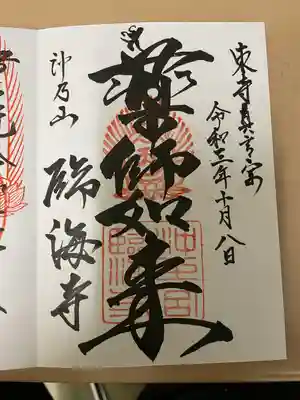 東寺真言宗
令和三年十月八日
薬師如来
沖乃山
臨海寺